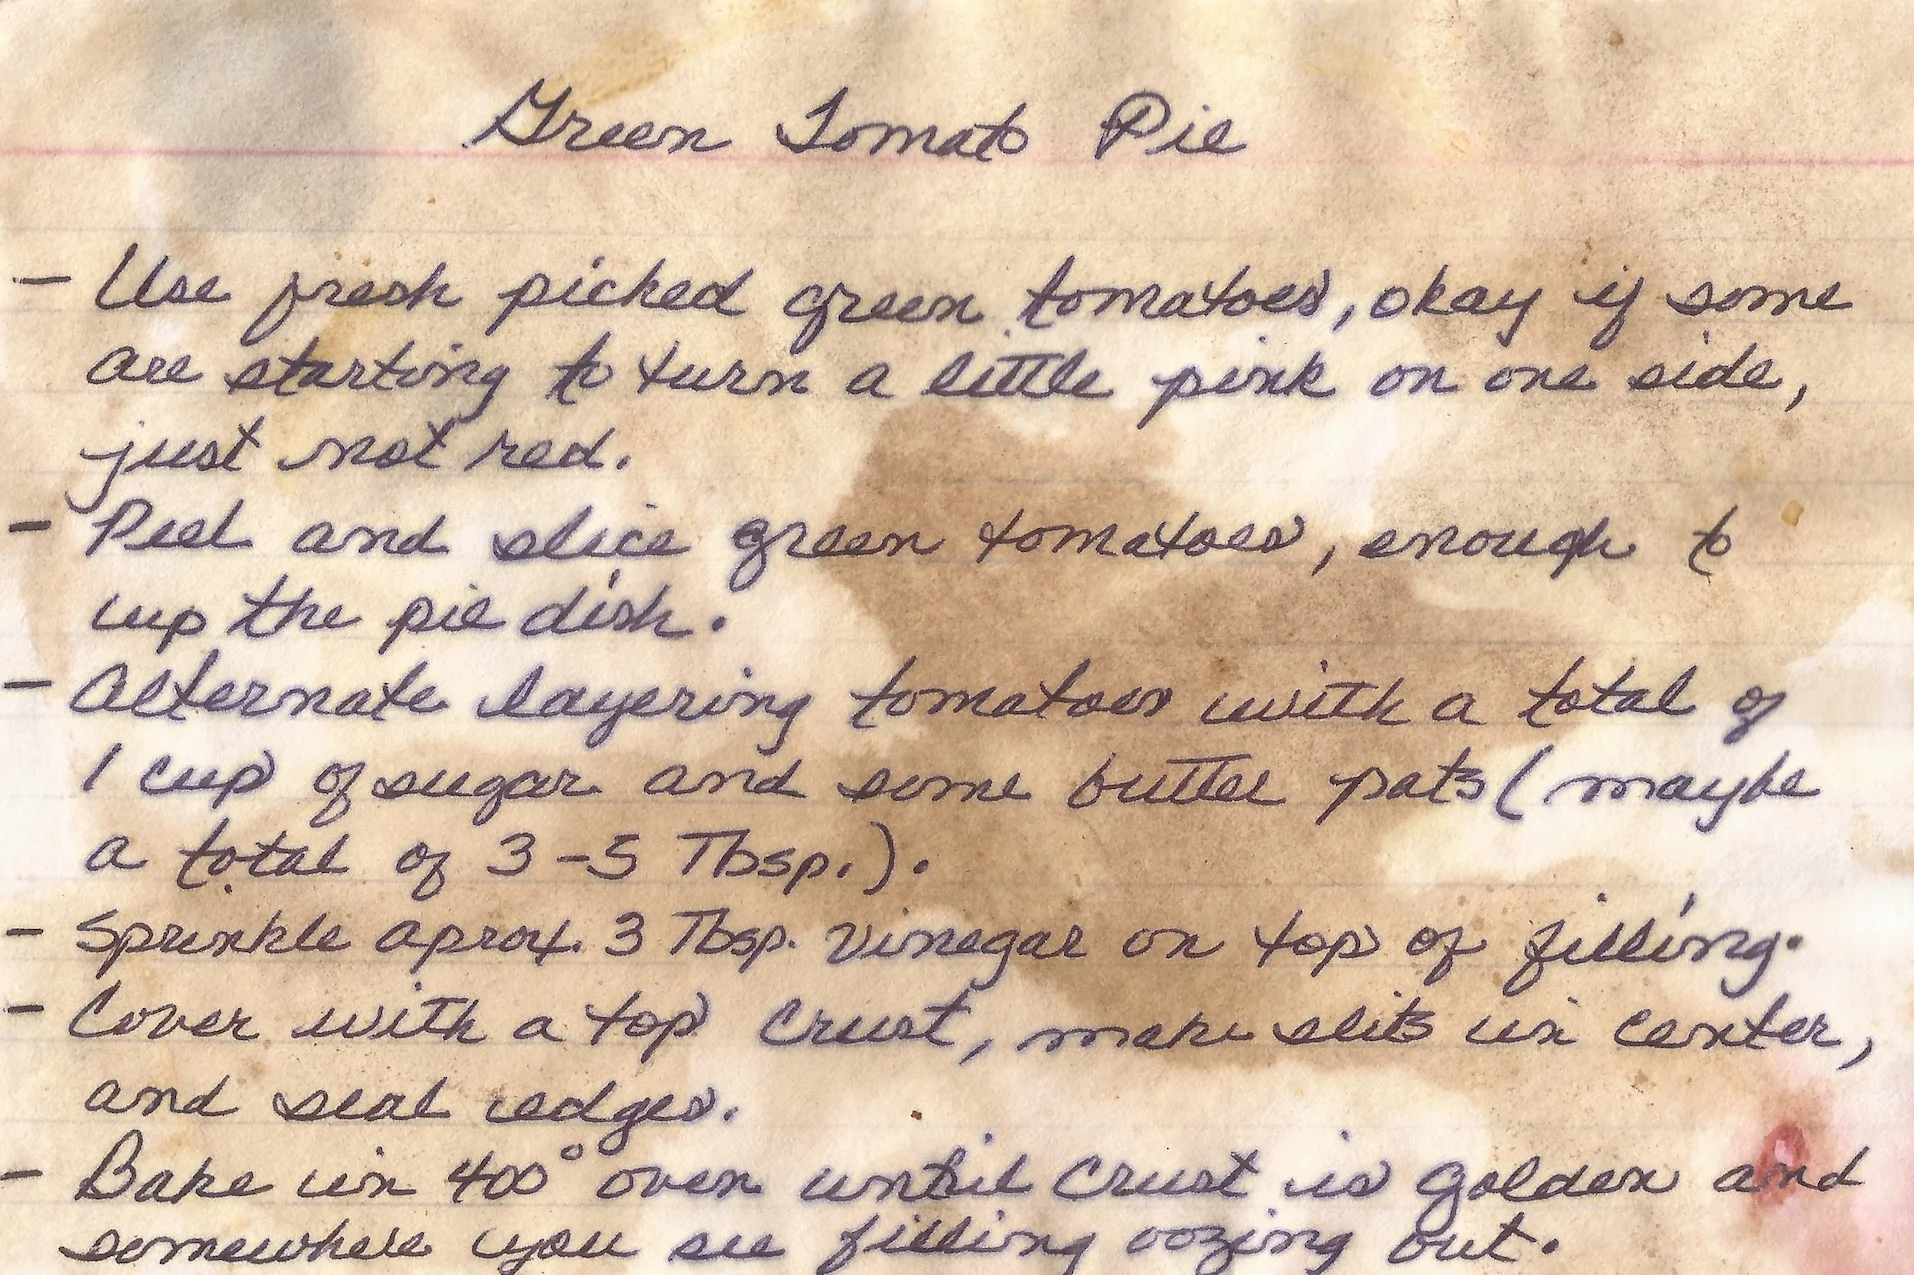 Green Tomato Pie
- Use fresh picked green tomatoes, okay if some
are starting to turn a little pink on one side,
just not red.
- Peel and slice green tomatoes, enough to
up the pie dish.
- Alternate layering tomatoes with a total of
1 cup of sugar and some butter pats (maybe
a total of 3-5 Tbsp.).
- Sprinkle aprox. 3 Tbsp. vinegar on top of filling.
- Cover with a top crust, make slits in center,
and seal edges.
- Bake in 400° oven until crust is golden and
somewhere you see filling oozing out.